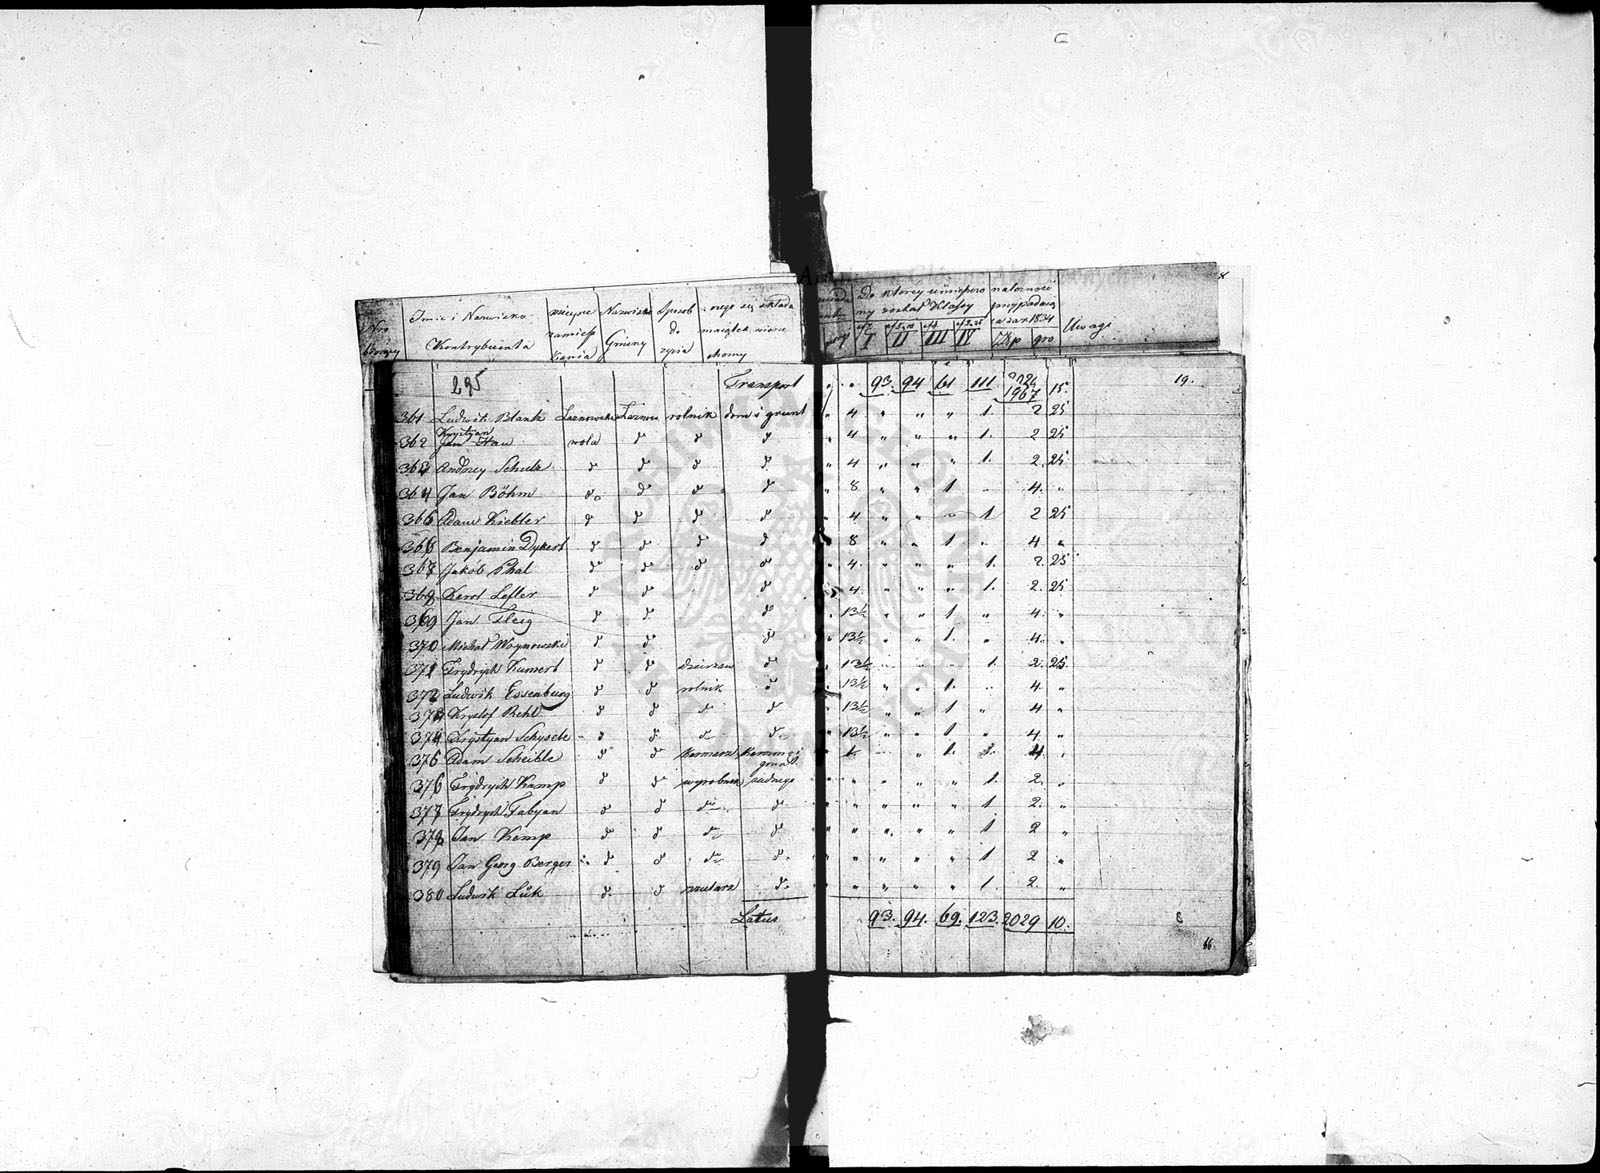 Nro
Imie i Nazwisko Kontrybuenta
Nazwisko Gminy
Sposób do życia
Do którey umieszczony został Klassy
I II III IV
przypadaią za rok 1834
Złp gro
Uwagi
295 Transport " " 93. 94 61 111 1967 15. 19.
361 Ludwik Blank Łaznowska Łaznow rolnik dom i grunt " 4 " " " 1. 2 25
362 Krystyan
Jan Hau wola d d d " 4 " " " 1. 2 25
363 Andrzey Schulz d d d d " 4 " " " 1. 2. 25
364 Jan Böhm do d d d " 8 " " 1 " 4. "
365 Adam Kiebler d d d d " 4 " " " 1 2 25
366 Benjamin Dykert d d d d " 8 " " 1 " 4 "
367 Jakób Phal d d d d " 4. " " " 1. 2. 25
368 Karol Lefler d d d " 4. " " " 1. 2. 25
369 Jan Fleig d d d " 13½ " " 1 " 4. "
370 Michał Woynowski d d d " 13½ " " 1. " 4. "
371 Frydrych Kumert d d dzierzaw d " 13½ " " " 1. 2. 25
372 Ludwik Essenburg d d rolnik d " 13½ " " 1. " 4. "
373 Krysztof Behl d d d d " 13½ " " 1 " 4 "
374 Krystyan d d d d " 13½ " " 1 " 4. "
375 Adam Scheible d d karczmarz karczma i grunt 1. 4 "
376 Frydrych Kamp d d wyrobnik żadnego " " " " " 1. 2. "
377 Frydrych Fabyan d d d d " " " " " 1 2. "
378 Jan Kemp d d d d " " " " " 1 2 "
379 Jan Georg Berger d d d d " " " " " 1 2 "
380 Ludwik Lük d d d " " " " " 1. 2. "
Latus 93. 94. 69. 123. 2029 10.
66.